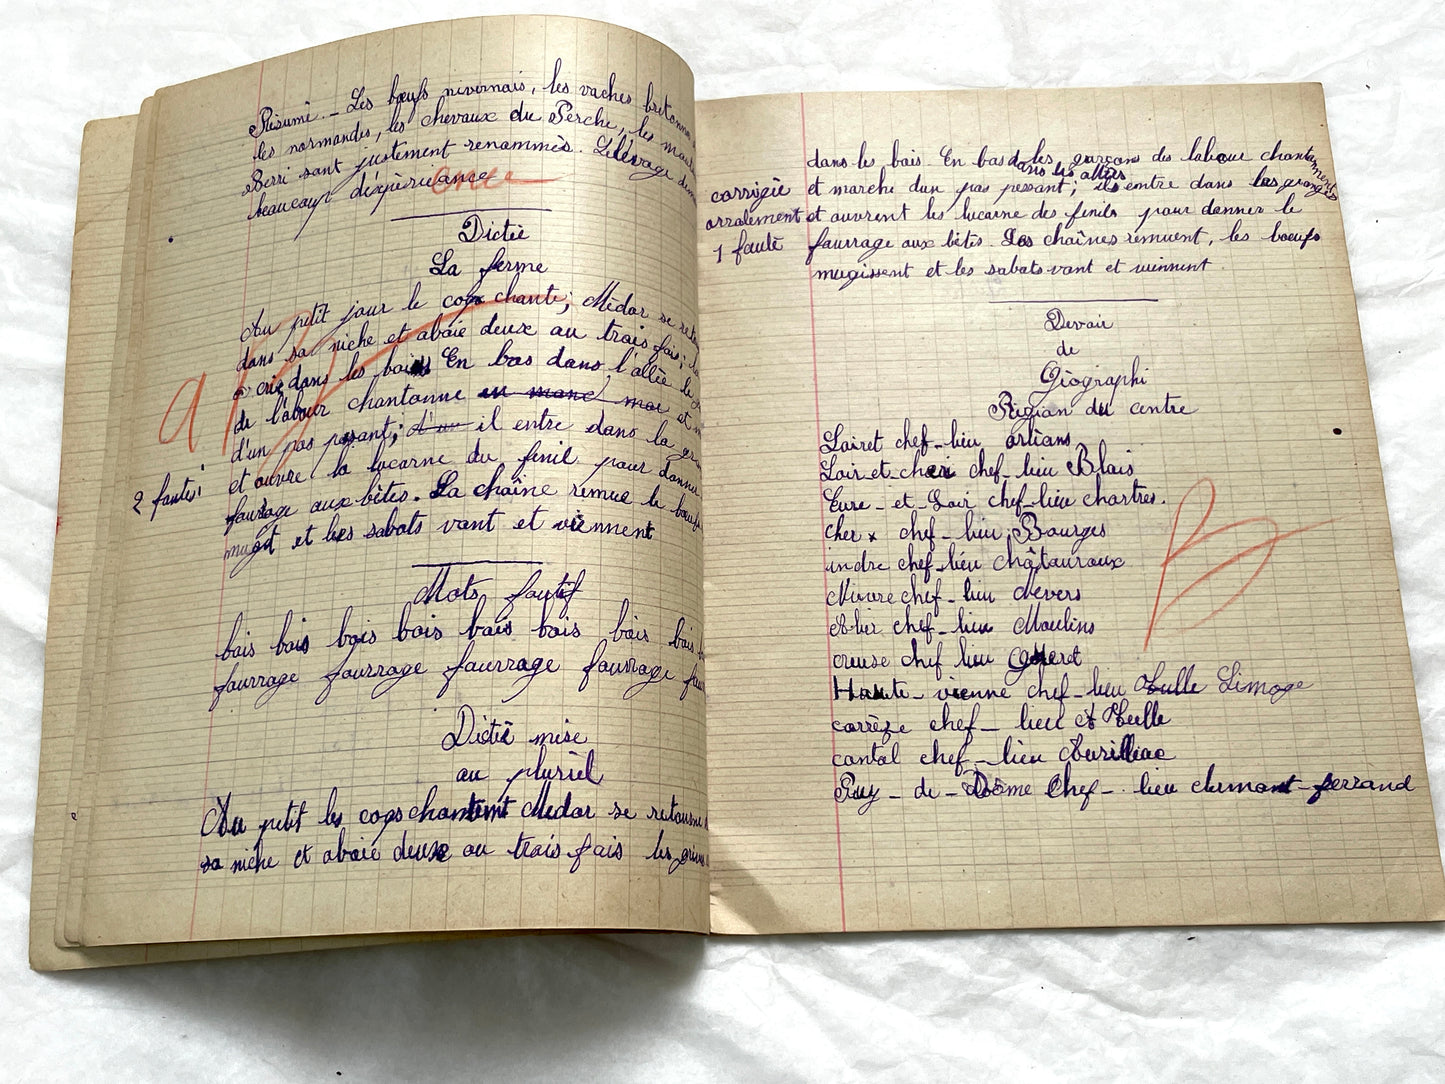 Résumé.- Les bœufs nivernais, les vaches bretonnes
les normandes, les chevaux du Perche, les
Berri sont justement renommés. L'élevage
beaucoup d'éxpèrience
ence
Dictée
La ferme
Au petit jour le coq chante; Médor se
dans sa niche et aboie deux ou trois fois;
crie dans les bois En bas dans l'allée le
de labour chantonne et
d'un pas pesant; il entre dans la
et ouvre la lucarne du fenil pour donner
fourrage aux bêtes. La chaîne remue le
mugit et les sabots vont et viennent
a B
2 fautes
Mots fautif
bois bois bois bois bois bois bois bois
fourrage fourrage fourrage fourrage
Dictée mise
au pluriel
Au petit les coqs chantent Medor se retourne
sa niche et aboie deux ou trois fois les
dans les bois. En bas dans les allées les garçons de labour chantonnent
corrigée
orralement
1 faute
et marche d'un pas pesant; ils entre dans les granges
et ouvrent les lucarne des fenils pour donner le
fourrage aux bêtes. Les chaînes remuent, les boeufs
mugissent et les sabots vont et viennent.
Devoir
de
Géographi
Région du centre
Loiret chef-lieu orléans
Loir-et-cher chef-lieu Blois
Eure-et-Loir chef-lieu chartres.
cher chef-lieu Bourges
indre chef-lieu châteauroux
Nievre chef-lieu Nevers
Alier chef-lieu Moulins
creuse chef lieu Gueret
B
Haute-vienne chef-lieu Tulle Limoge
corrèze chef-lieu Tulle
cantal chef-lieu Aurillac
Puy-de-Dôme chef-lieu clermont-ferrand